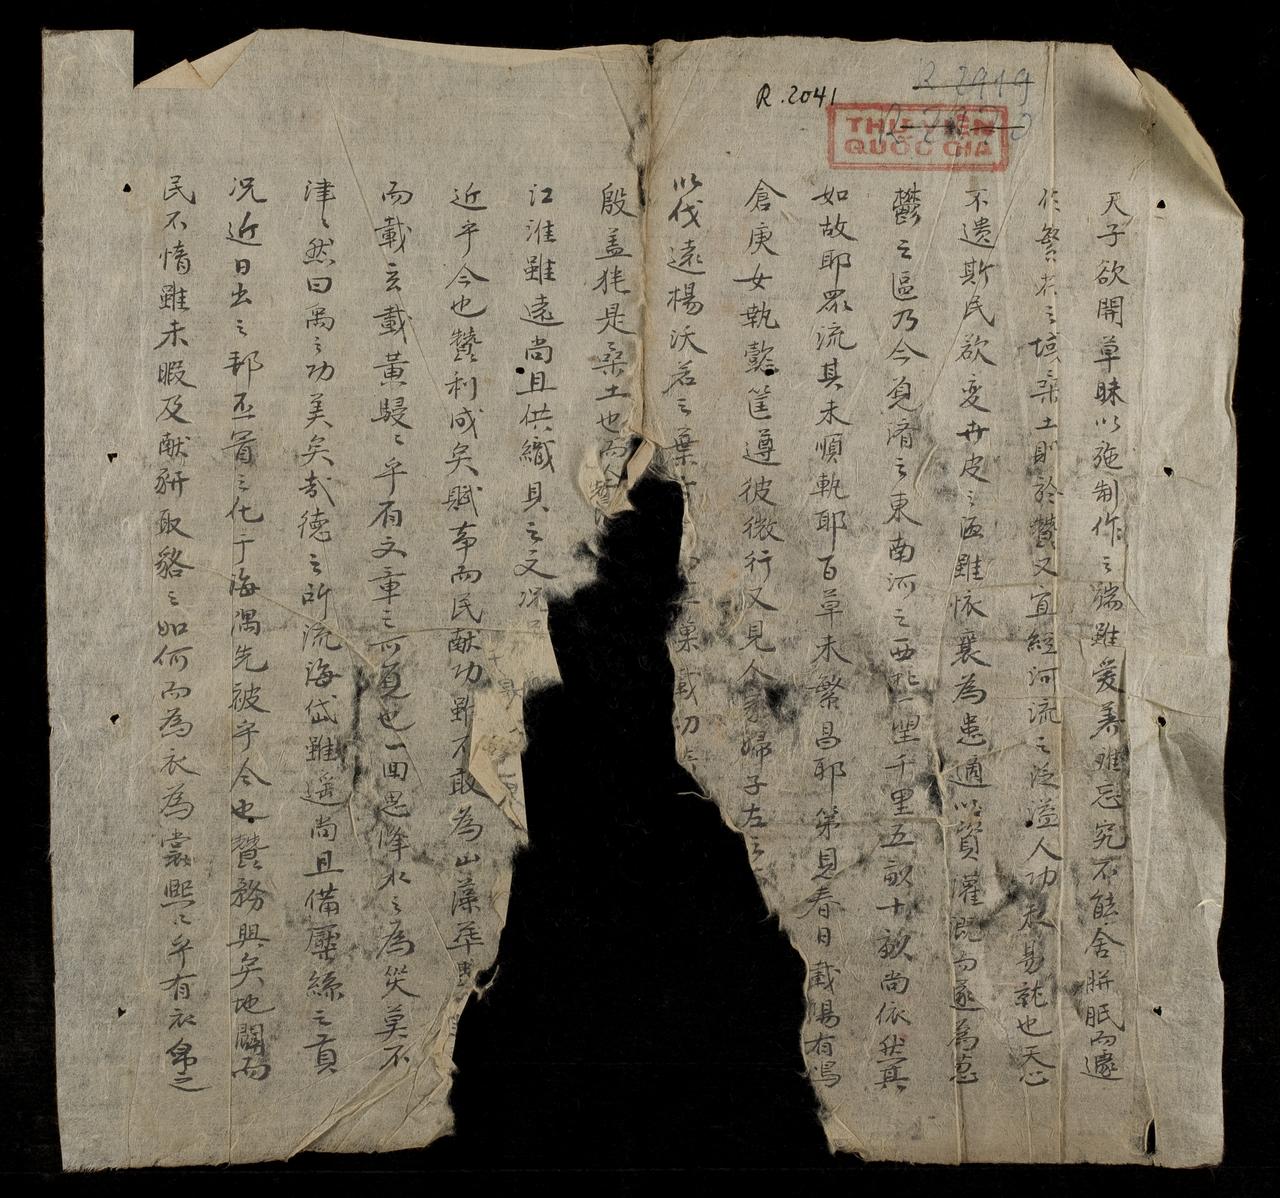 R.2041
R 2919
THƯ VIỆN
QUỐC GIA
天子欲開草昧以施制作之端雖愛養难忘究不能舍胼胝而遽
作繁者之域桑土耶於賛又宜經河流之泛溢人功未易就也天心
不遺斯民欲变卉皮之區雖怀襄為患適以資灌溉而遂為葱
鬱之區乃今覓濟之東南河之西北一望千里五畝十畝尚依然其
如故耶眾流其未順軌耶百草未繁昌耶第見春日載陽有鳴
倉庚女執懿筐遵彼微行又見人家婦子左之
以伐遠楊沃若之葉
殷盖猶是桑土也而今
江淮雖遠尚且供織貝之文况
近乎今也賛利成矣賦亊而民献功雖不敢為山藻華
而載玄載黃駸〻乎有文章之可覓也一囬思洚水之為災莫不
津〻然曰禹之功美矣哉德之所流海岱雖遥尚且備檿絲之貢
况近日出之邦丕冒之化于海隅先被乎今也賛務興矣地闢而
民不惰雖未暇及献豣取貉之如何而為衣為裳熙〻乎有衣帛之